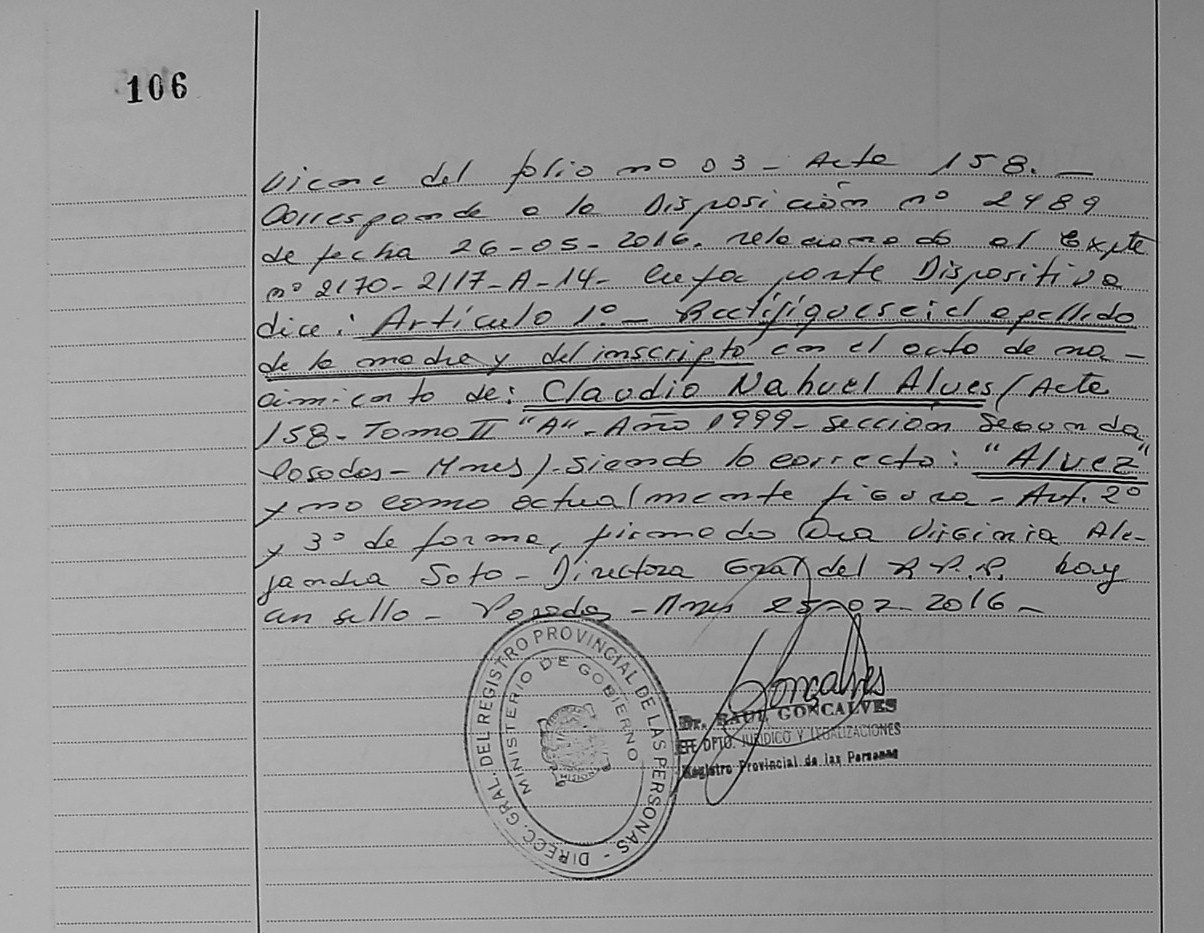 106
Viene del folio nº 03 - Acta 158. —
Corresponde a la Disposición nº 2489
de fecha 26-05-2016. relacionado al Expte
nº 2170-2117-A-14- Cuya parte Dispositiva
dice: Artículo 1º - Rectifíquese: el apellido
de la madre y del inscripto en el acta de na-
cimiento de: Claudio Nahuel Alves (Acta
158 - Tomo II "A" - Año 1999 - Sección Segunda
Posadas - Mnes). Siendo lo correcto: "Alvez"
y no como actualmente figura - Art. 2º
y 3º de forma, firmado Dra Virginia Ale-
jandra Soto - Directora Gral del R.P.P. hay
un sello - Posadas - Mnes 25-07-2016 -
DIRECC. GRAL. DEL REGISTRO PROVINCIAL DE LAS PERSONAS -
MINISTERIO DE GOBIERNO
MISIONES
Gonçalves
Dr. RAUL GONCALVES
DPTO. JURIDICO Y LEGALIZACIONES
Registro Provincial de las Personas